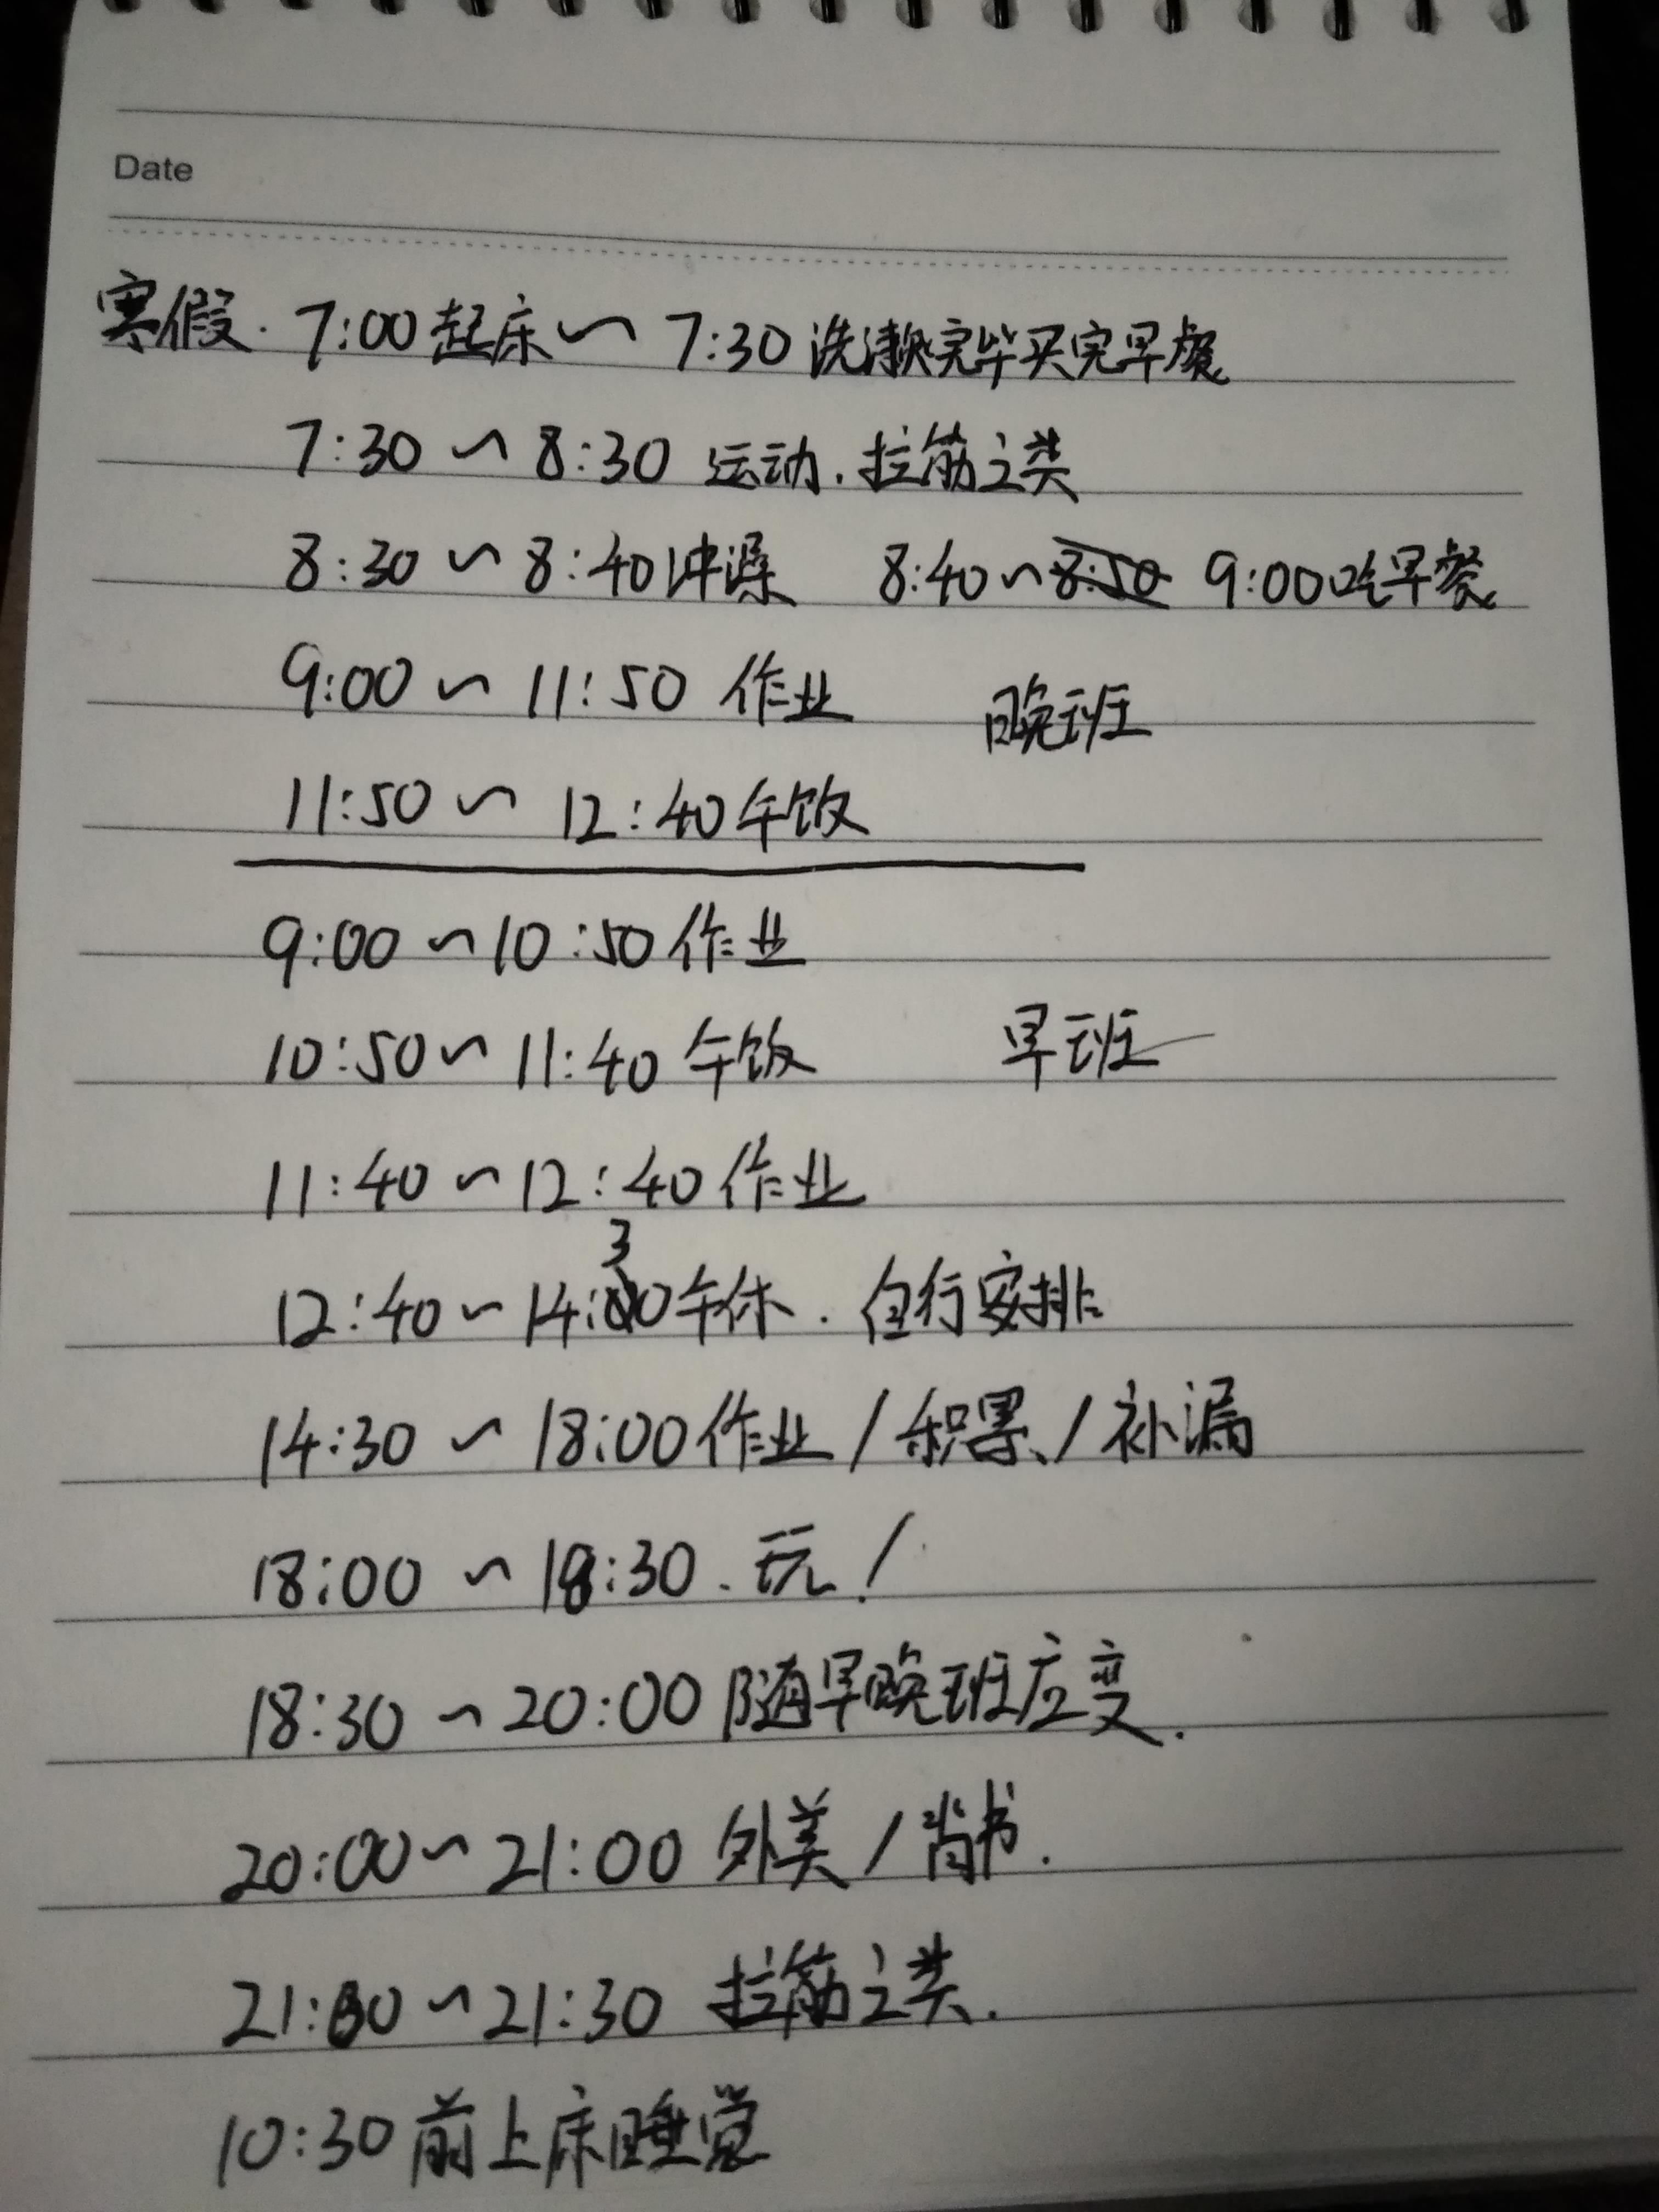 Date
寒假. 7:00起床~ 7:30 洗漱完毕买完早餐
7:30 ~ 8:30 运动.拉筋之类
8:30 ~ 8:40冲澡 8:40~8:50 9:00吃早餐
9:00 ~ 11:50 作业 晚班
11:50 ~ 12:40午饭
9:00 ~10:50作业
10:50~ 11:40 午饭 早班
11:40 ~12:40作业
12:40~14:30午休. 自行安排
14:30 ~ 18:00作业/积累/补漏
18:00 ~ 18:30.玩!
18:30 ~20:00随早晚班应变.
20:00~21:00 外美/背书.
21:00~21:30 拉筋之类.
10:30前上床睡觉